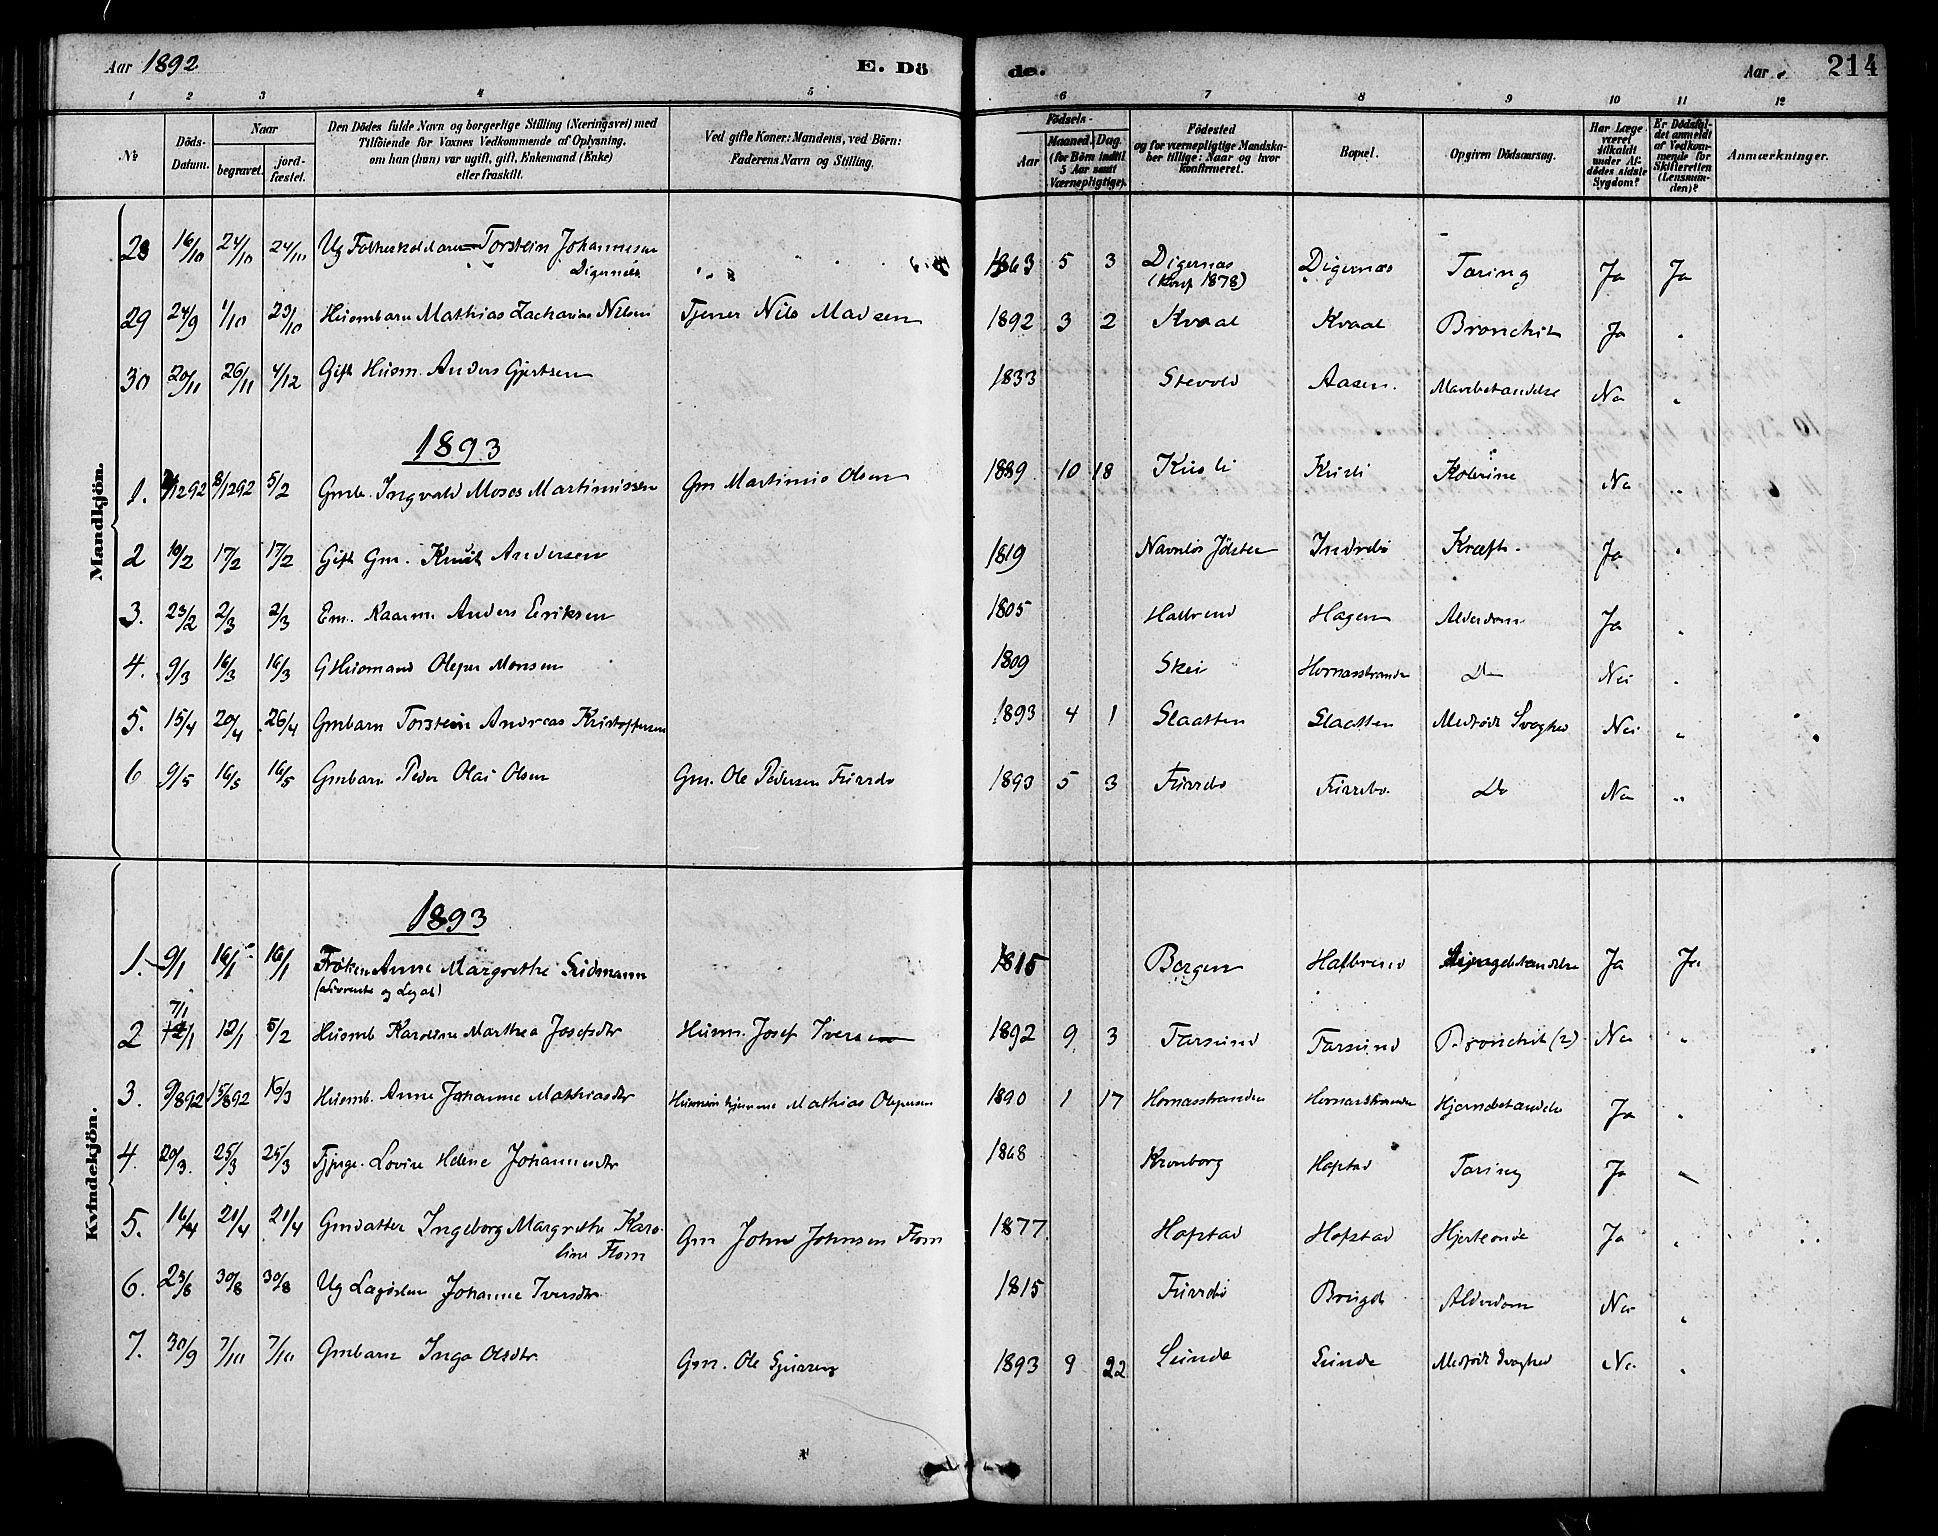 Aar 1892 E. Dö de. Aar 214
1 2 3 4 5 6 7 8 9 10 11 12
№
Döds-Datum.
Naar
begravet.
jord-fæstet.
Den Dödes fulde Navn og borgerlige Stilling (Næringsvei) med
Tilföiende for Voxnes Vedkommende af Oplysning,
om han (hun) var ugift, gift, Enkemand (Enke)
eller fraskilt.
Ved gifte Koner: Mandens, ved Börn:
Faderens Navn og Stilling.
Födsels-
Aar
Maaned. Dag.
(for Börn indtil
5 Aar samt
Værnepligtige).
Födested
og for værnepligtige Mandska-
ber tillige: Naar og hvor
konfirmeret.
Bopæl.
Opgiven Dödsaarsag.
Har Læge
været
tilkaldt
under Af-
dødes sidste
Sygdom?
Er Dödsfal-
det anmeldt
af Vedkom-
mende for
Skifteretten
(Lensman-
den)?
Anmærkninger.
Mandkjön.
28 16/10 24/10 24/10 Ug Torstein Johannesen 1863 5 3 Digernæs Digernæs Tæring Ja Ja
Digernæs (Konf 1878)
29 24/9 1/10 23/10 Husmbarn Mathias Zacharias Nilsen Tjener Nils Madsen 1892 3 2 Kvaal Kvaal Bronchit Ja "
30 20/11 26/11 4/12 Gift Husm. Anders Gjertsen 1833 Stevold Aasen. Mavebetændelse Nei "
1893
1. /1292 8/1292 5/2 Gmb. Ingvald Moses Martinussen Gm Martinus Olsen 1889 10 18 Kusli Kusli Kolerine Nei "
2 10/2 17/2 17/2 Gift Gm. Knut Andersen 1819 Navnlös Jölster Indrebö Kræft. Ja "
3. 23/2 2/3 2/3 Em. Kaarm. Anders Eeriksen 1805 Halbrend Hagen Alderdom Ja "
4. 9/3 16/3 16/3 G Husmand Oleper Monsen 1809 Skei Hornasstranden Do Nei "
5. 15/4 20/4 26/4 Gmbarn Torstein Andreas Kristoffersen 1893 4 1 Slaatten Slaatten Medfödt Svaghed Nei "
6 9/5 16/5 16/5 Gmbarn Peder Olai Olsen Gm. Ole Pedersen Furrebö 1893 5 3 Furrebö Furrebö. Do Nei "
Kvindekjön.
1893
1. 9/1 16/1 16/1 Fröken Anne Margrethe Seidmann 1815 Bergen Halbrend Ja Ja
7/1
2 12/1 12/1 5/2 Husmb Karoline Marthea Josefsdtr Husm. Josef Iversen 1892 9 3 Farsund Farsund Bronchit (2) Nei "
3. 9/892 15/892 16/3 Husmb. Anne Johanne Mathiasdtr Mathias Olepersen 1890 1 17 Hornasstranden Hornasstranden Hjernebetændelse Ja "
4. 20/3. 25/3 25/3 Tjpige. Lovise Helene Johannesdtr 1868 Kronborg Hafstad Tæring Ja "
5. 16/4 21/4 21/4 Gmdatter Ingeborg Margrethe Karo- Gm John Johnsen Flom 1877 Hafstad Hafstad Hjerteonde Ja "
line Flom
6. 23/8 30/8 30/8 Ug Lægdslem Johanne Iversdtr 1815 Furrebö Brugd Alderdom Nei "
7. 30/9 7/10 7/10 Gmbarn Inga Olsdtr. Gm. Ole 1893 9 22 Sunde Sunde Medfödt Svaghed Nei "